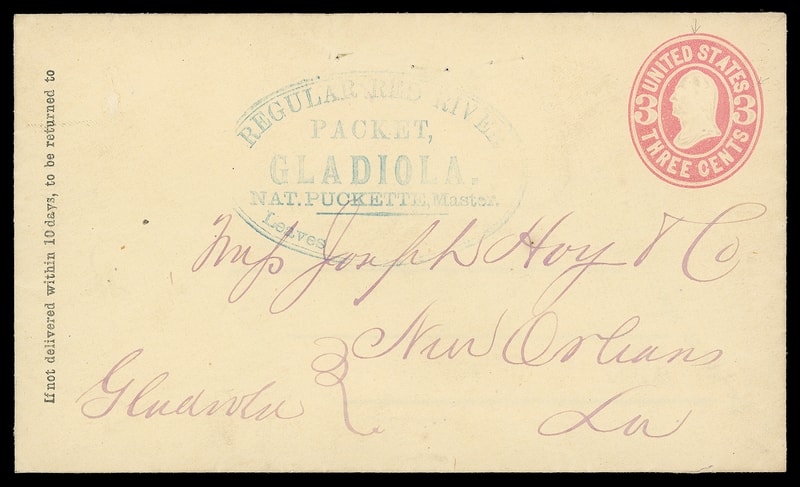 If not delivered within 10 days, to be returned to
REGULAR RED RIVER
PACKET,
GLADIOLA,
NAT. PUCKETTE, Master.
Leaves
UNITED STATES
3 3
THREE CENTS
Joseph Hoy & Co
New Orleans
La
Gladiola